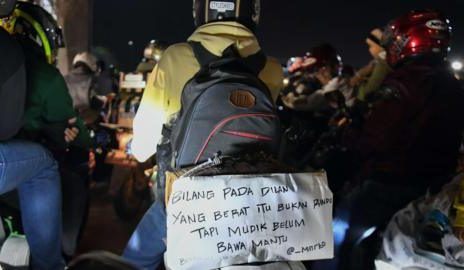 BILANG PADA DILAN
YANG BERAT ITU BUKAN RINDU
TAPI MUDIK BELUM
BAWA MANTU